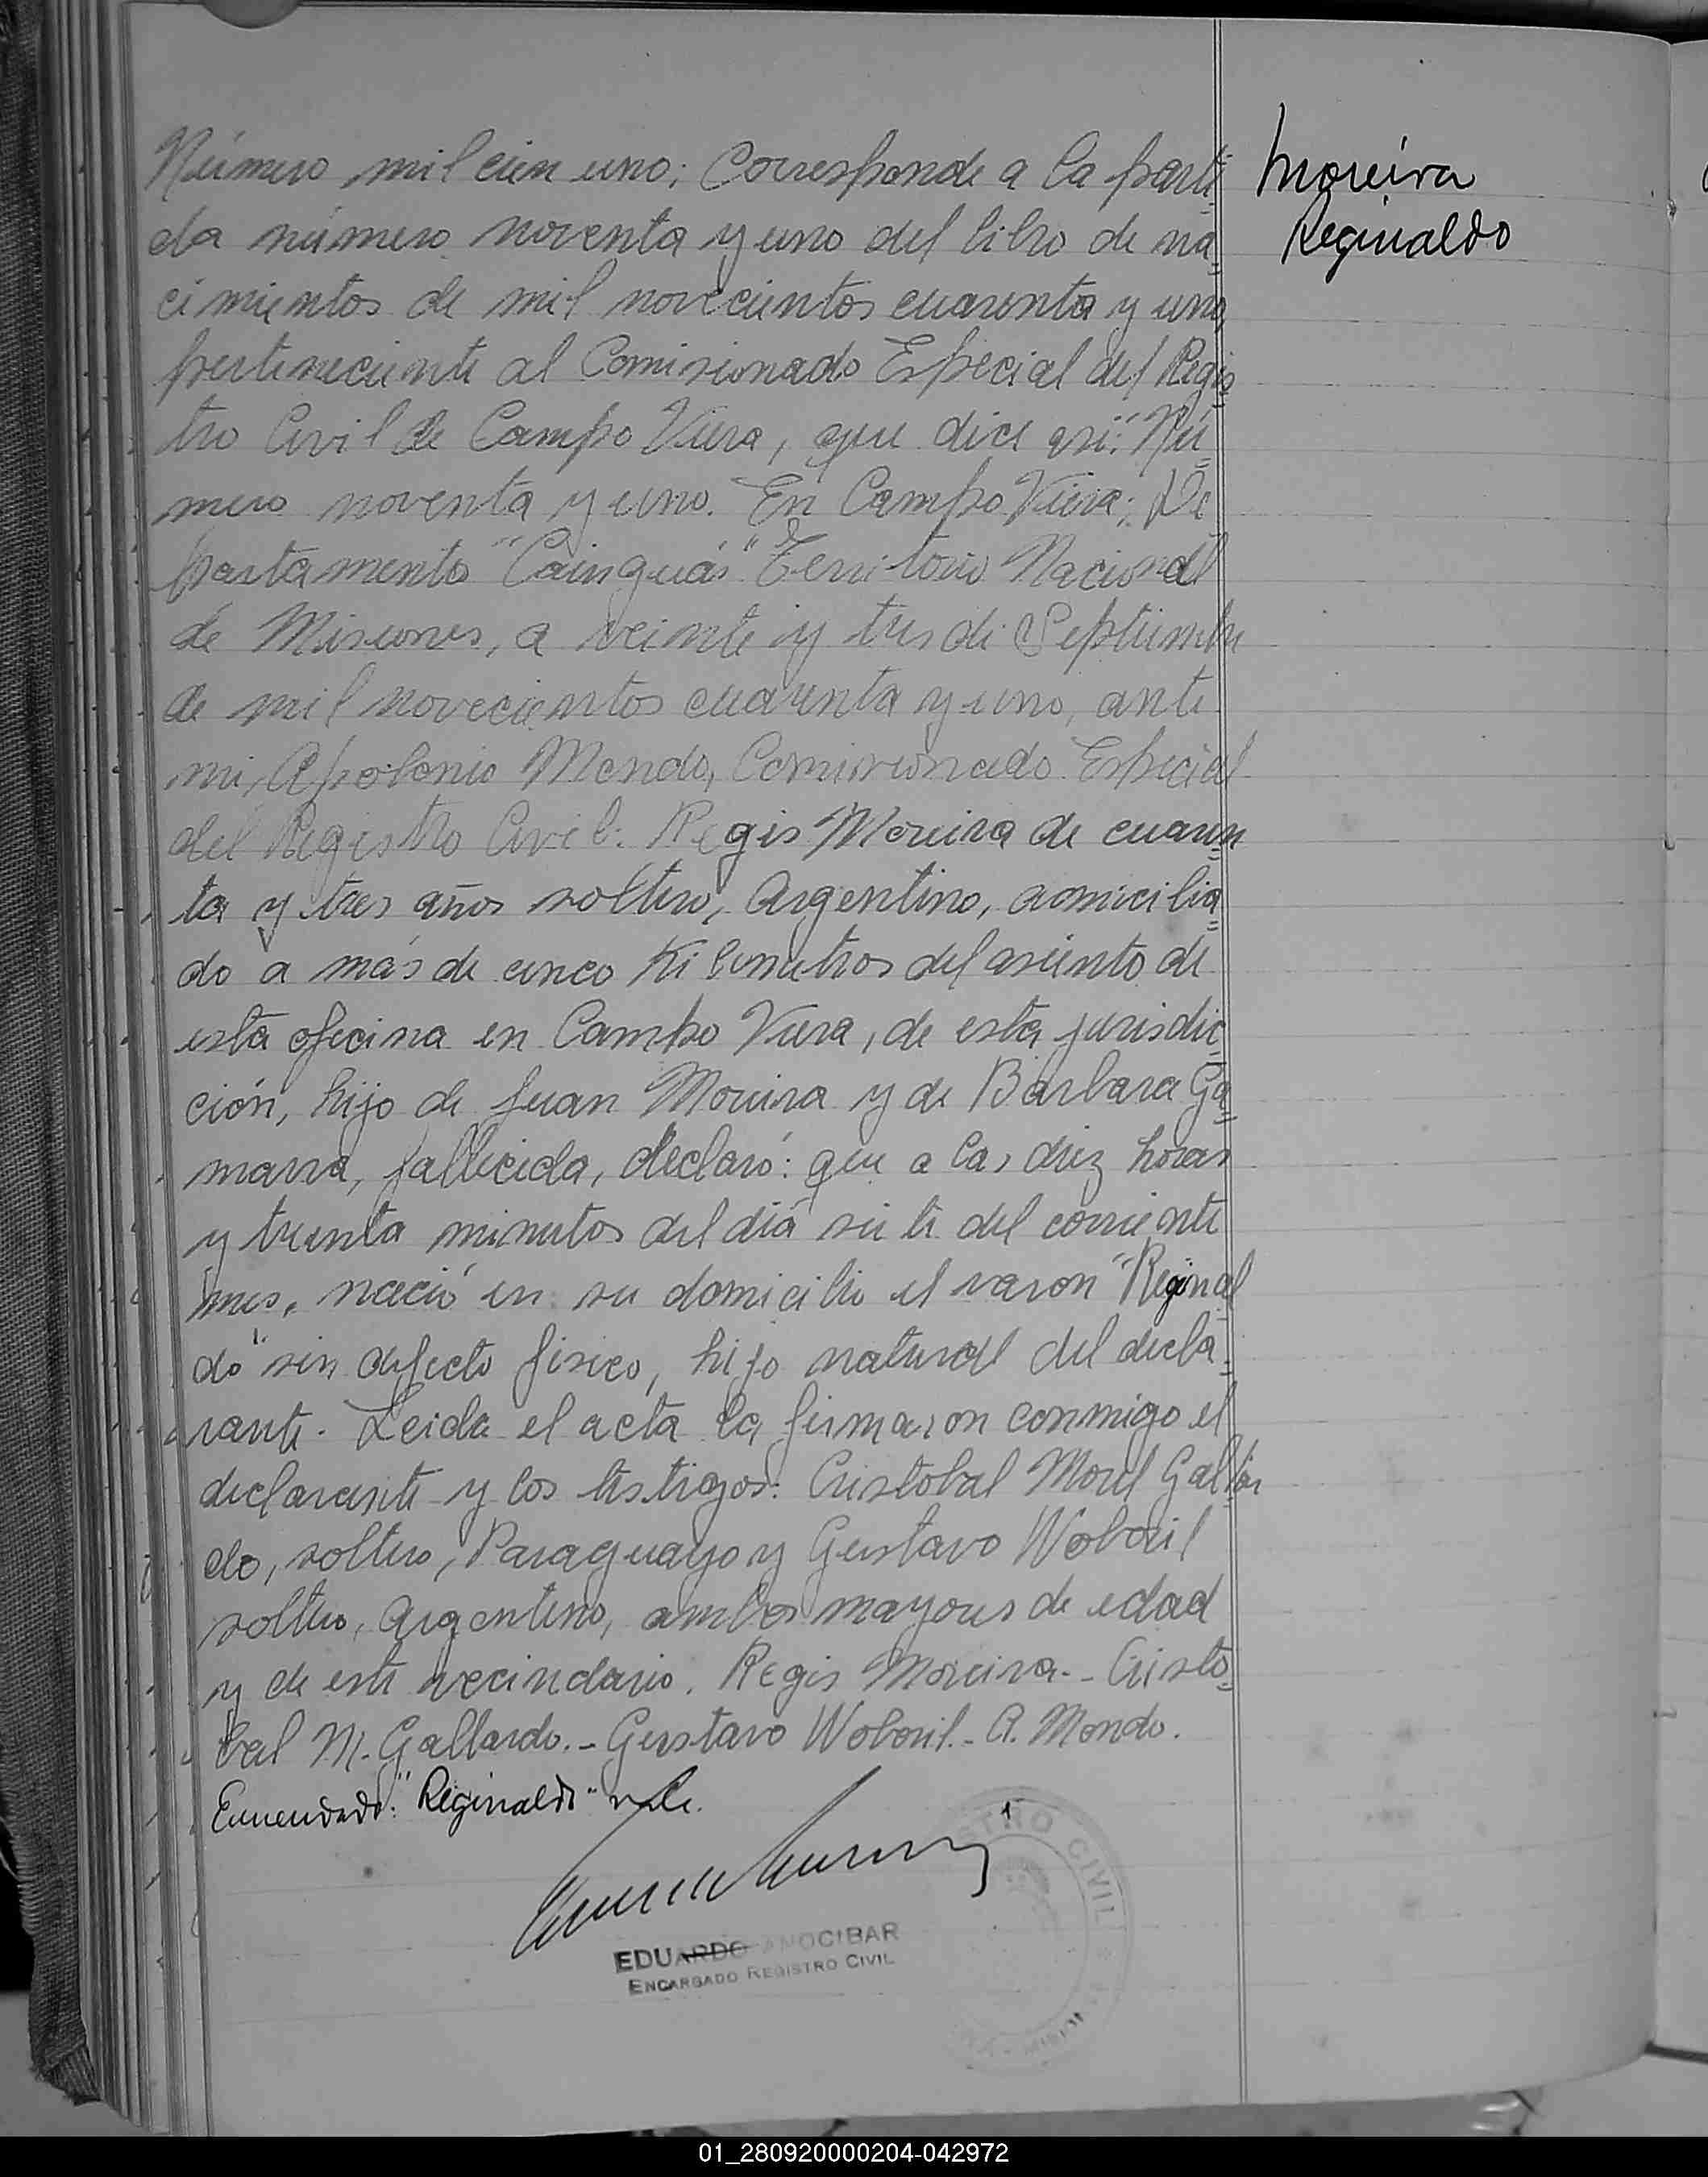 Moreira
Reginaldo
Número mil cien uno; Corresponde a la parti
da número noventa y uno del libro de na=
cimientos de mil novecientos cuarenta y uno,
perteneciente al Comisionado Especial del Regis=
tro Civil de Campo Viera, que dice así: "Nú=
mero noventa y uno. En Campo Viera; De
partamento "Cainguás" Territorio Nacional
de Misiones, a veinte y tres de Septiembre
de mil novecientos cuarenta y uno, ante
mi, Apolonio Mondo, Comisionado Especial
del Registro Civil: Regis Moreira de cuaren=
ta y tres años soltero, Argentino, domicilia=
do a más de cinco Kilometros del asiento de
esta oficina en Campo Viera, de esta jurisdic=
ción, hijo de Juan Moreira y de Barbara Ga=
marra, fallecida, declaró: que a las diez horas
y treinta minutos del día siete del corriente
mes, nació en su domicilio el varon "Reginal
do" sin defecto fisico, hijo natural del decla=
rante. Leida el acta la firmaron conmigo el
declarante y los testigos: Cristobal Morel Gallar=
do, soltero, Paraguayo y Gustavo Woboril
soltero, Argentino, ambos mayores de edad
y de este vecindario. Regis Moreira.- Cristo=
bal M. Gallardo.- Gustavo Woboril.- A. Mondo.
Enmendado: "Reginaldo" vale.
EDUARDO ANOCIBAR
ENCARGADO REGISTRO CIVIL
TRO CIVIL
01_280920000204-042972